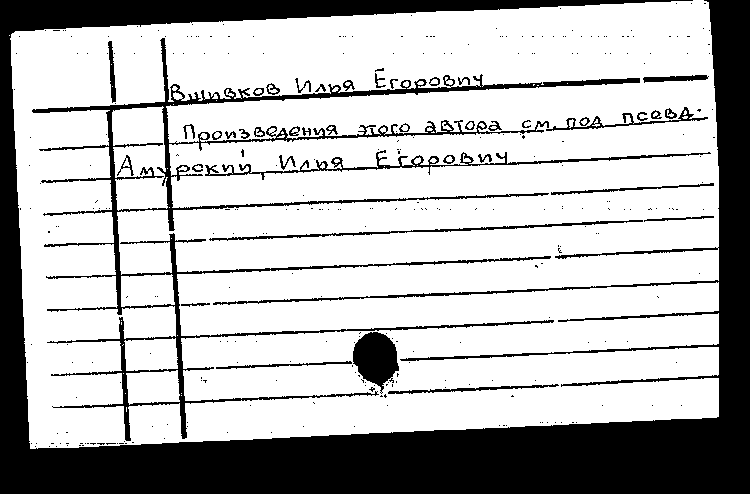 Вшивков Илья Егорович
Произведения этого автора см. под псевд.
Амурский, Илья Егорович